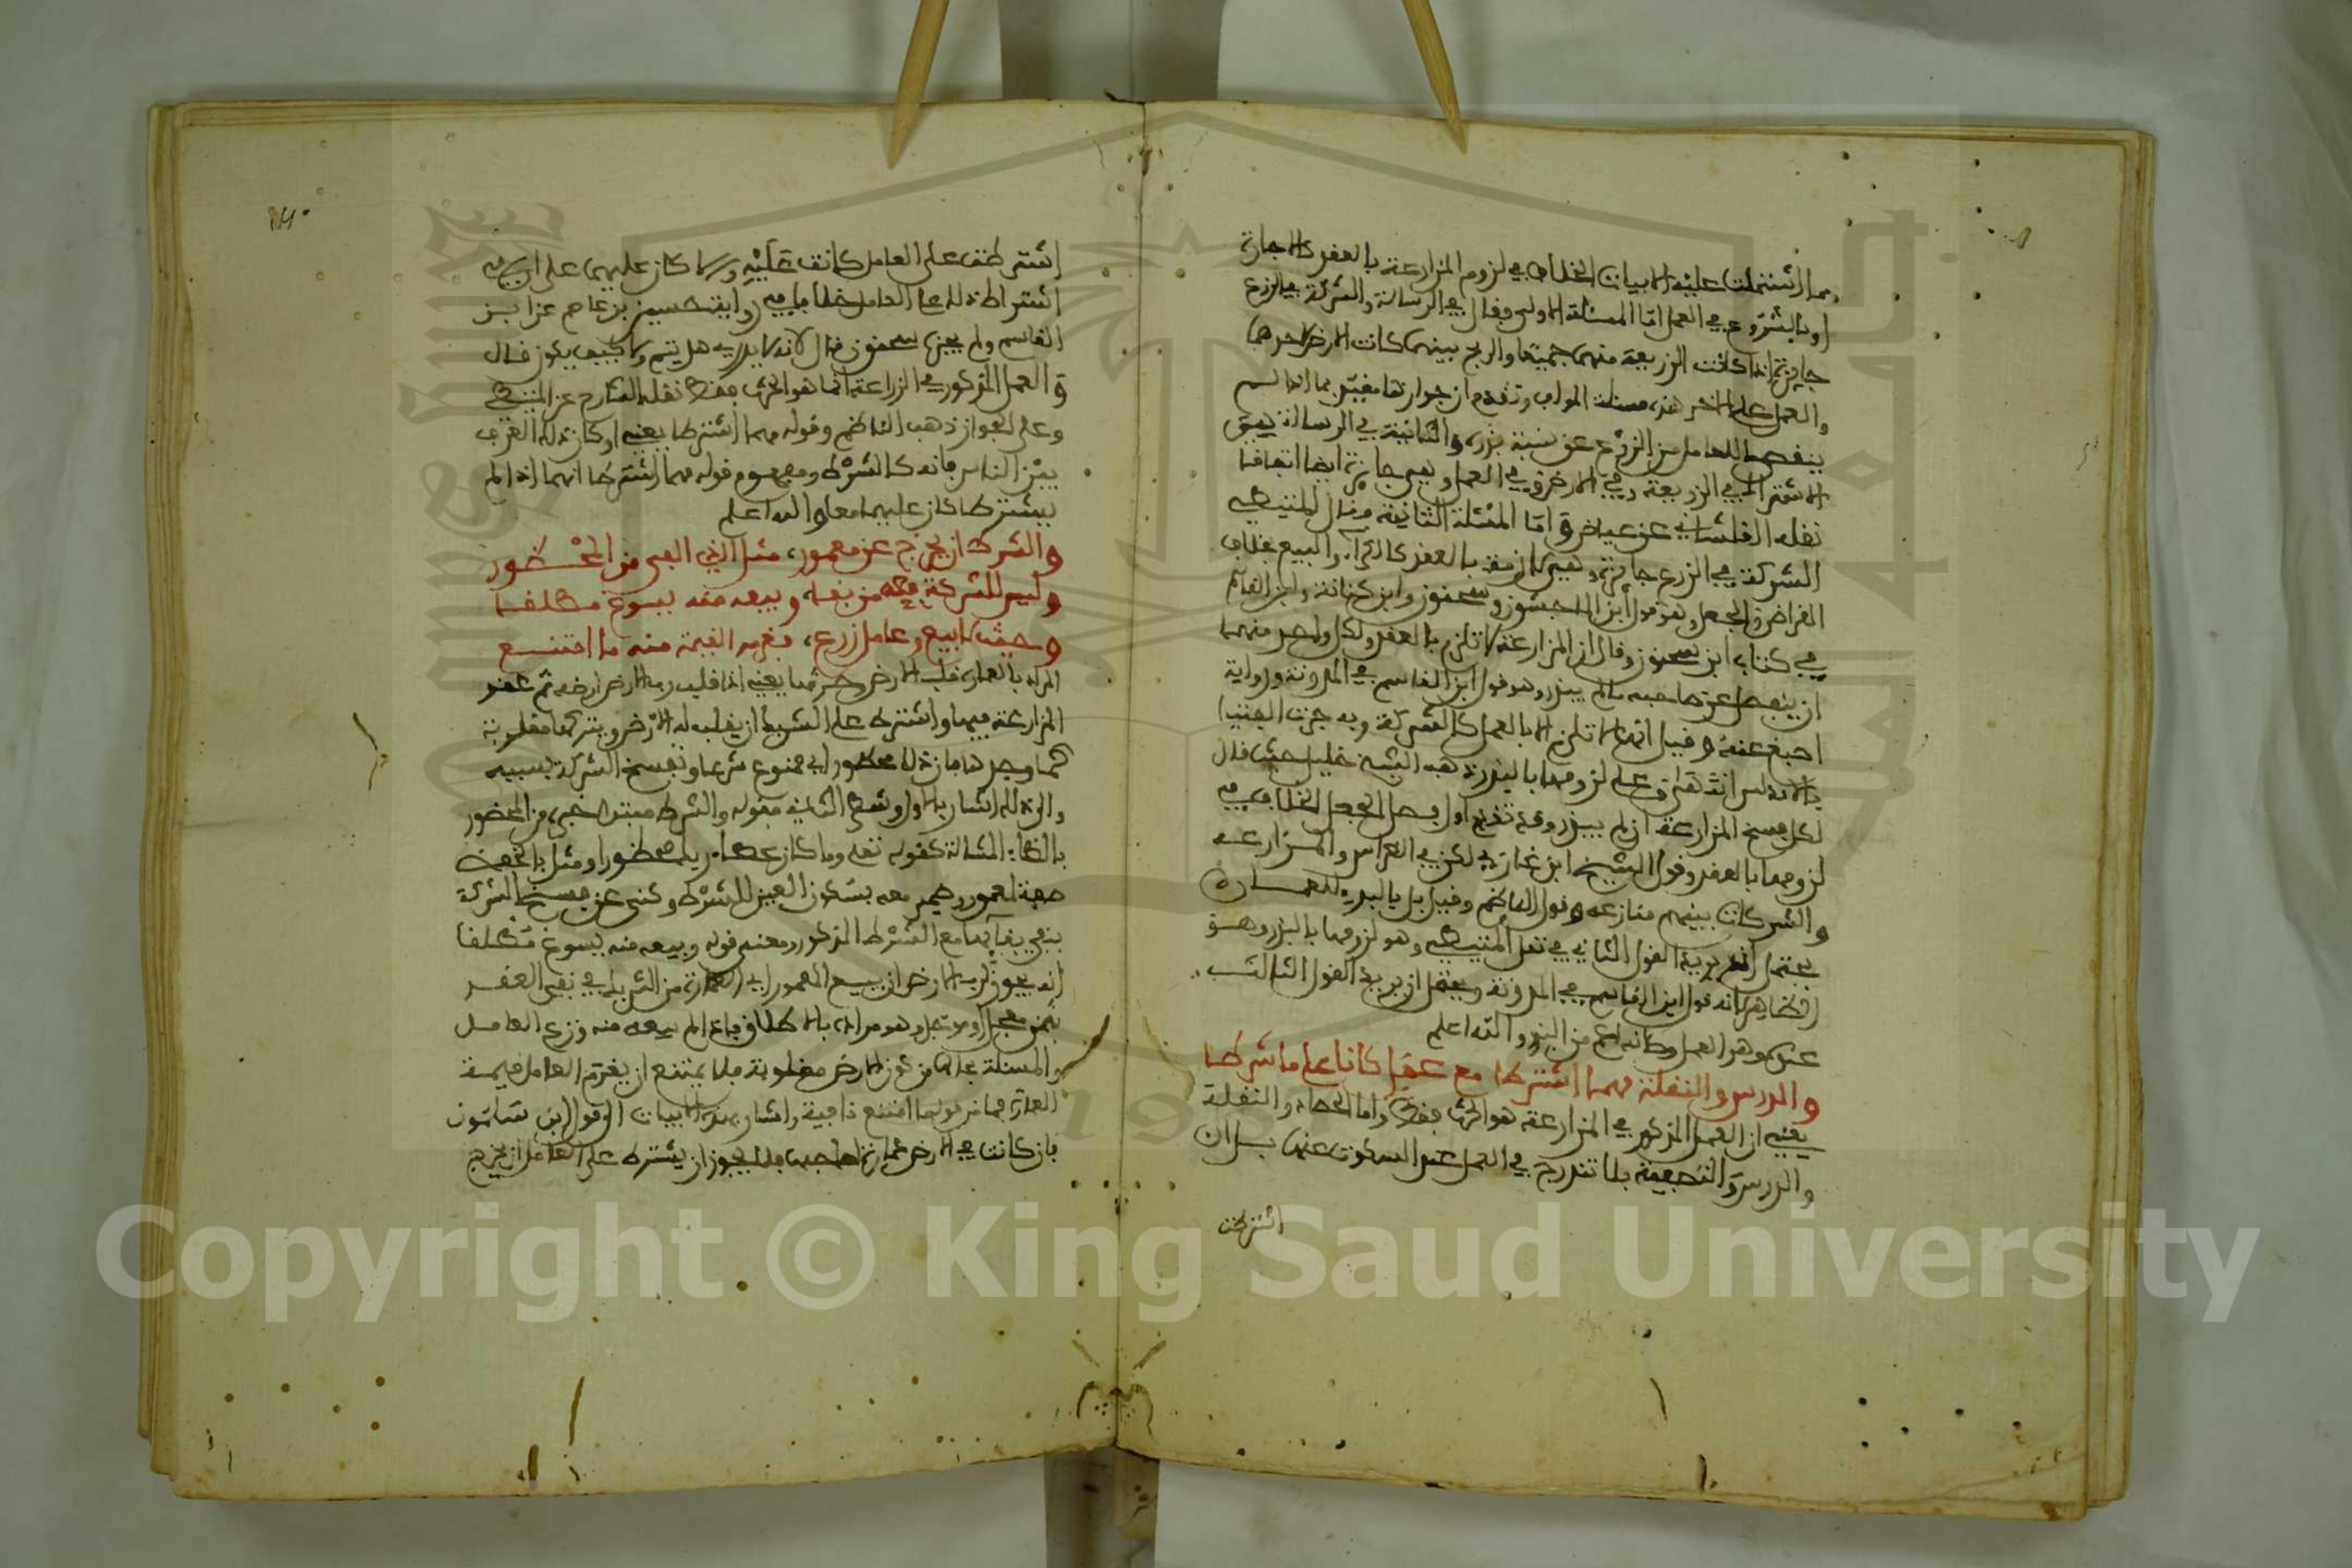 مما اشتملت عليه الابيات الخلاف في لزوم المزارعة بالعقد كالاجارة
او بالشروع في العمل اما المسئلة الاولى فقال في الرسالة والشركة في الزرع
جايزة اذا كانت الزريعة منهما جميعا والربح بينهما كانت الارض لاحدهما
والعمل على الاخر هذه مسئلة المولف وتقدم ان جوازها مقيد بما اذا لم
ينقص ما للعامل من الزرع عن نسبة بذره والثانية في الرسالة
الاشتراك في الزريعة وفي الارض وفي العمل وهي جايزة ايضا اتفاقا
نقله القلشاني عن عياض واما المسئلة الثانية فقال المتيطي
الشركة في الزرع جايزة وهي لازمة بالعقد كالكراء والبيع بخلاف
القراض والجعل وهو قول ابن الماجشون وسحنون وابن كنانة وابن القاسم
في كتاب ابن سحنون وقال ان المزارعة لا تلزم بالعقد ولكل واحد منهما
ان ينفصل عن صاحبه ما لم يبذر وهو قول ابن القاسم في المدونة ورواية
اصبغ عنه وقيل انها لا تلزم الا بالعمل كالشركة وبه جرت الفتيا
بالاندلس انتهى وعلى لزومها بالبذر ذهب الشيخ خليل حيث قال
لكل فسخ المزارعة ان لم يبذر وقد تقدم اول فصل الجعل الخلاف في
لزومها بالعقد وقول الشيخ ابن غازي لكن في الغراس والمزارعه
والشركات بينهم منازعه وقول الناظم وقيل بل بالبدء للعماره
يحتمل ان يريد القول الثاني في نقل المتيطي وهو لزومها بالبذر وهو
الظاهر لانه قول ابن القاسم في المدونة ويحتمل ان يريد القول الثالث
عنده وهو العمل وكانه اعم من البذر والله اعلم
والدرس والنقلة مهما اشترطا مع عمل كانا على ما شرطا
يعني ان العمل المذكور في المزارعة هو الحرث فقط واما الحصاد والنقلة
والدرس والتصفية فلا تندرج في العمل عند السكوت عنها بل ان
اشترطت
اشترطت على العامل كانت عليه والا كان عليهما على ان في
اشتراط ذلك على العامل خلافا ففي رواية حسين بن عاصم عن ابن
القاسم ولم يجزه سحنون قال لانه لا يدري هل يتم ولا كيف يكون قال
والعمل المذكور في الزراعة انما هو الحرث فقط نقله الشارح عن المتيطي
وعلى الجواز ذهب الناظم وقوله مهما اشترطا يعني او كان ذلك العرف
بين الناس فانه كالشرط ومفهوم قوله مهما اشترطا انهما اذا لم
يشترطا كان عليهما معا والله اعلم
والشرط ان يخرج عن معمور، مثل الذي الفي من المحظور
وليس للشركة معه من بقا، وبيعه منه يسوغ مطلقا
وحيث لا بيع وعامل زرع، فغرمه القيمة منه ما امتنع
المراد بالعمارة قلب الارض وحرثها يعني اذا قلب رب الارض ارضه ثم عقد
المزارعة فيها واشترط على الشريك ان يقلب له الارض ويتركها مقلوبة
كما وجدها فان ذلك محظور اي ممنوع شرعا وتفسخ الشركة بسببه
والى ذلك اشار بالاول وشطر الثاني فقوله والشرط مبتدا خبره من المحظور
بالظاء المشالة كقوله تعلى وما كان عطاء ربك محظورا ومثل بالخفض
صفة لمعمور وضمير معه بسكون العين للشرط وكنى عن فسخ الشركة
بنفي بقائها مع الشرط المذكور ومعنى قوله وبيعه منه يسوغ مطلقا
انه يجوز لرب الارض ان يبيع المعمور اي العمارة من الشريك في نفس العقد
بثمن معجل او موجل وهو مراده بالاطلاق فاذا لم يبعه منه وزرع العامل
والمسئلة بحالها من كون الارض مقلوبة فلا يمتنع ان يغرم العامل قيمة
العمارة فما من قوله ما امتنع نافية واشار بهذه الابيات الى قول ابن سلمون
فان كانت في الارض عمارة لصاحبها فلا يجوز ان يشترط على العامل ان يخرج